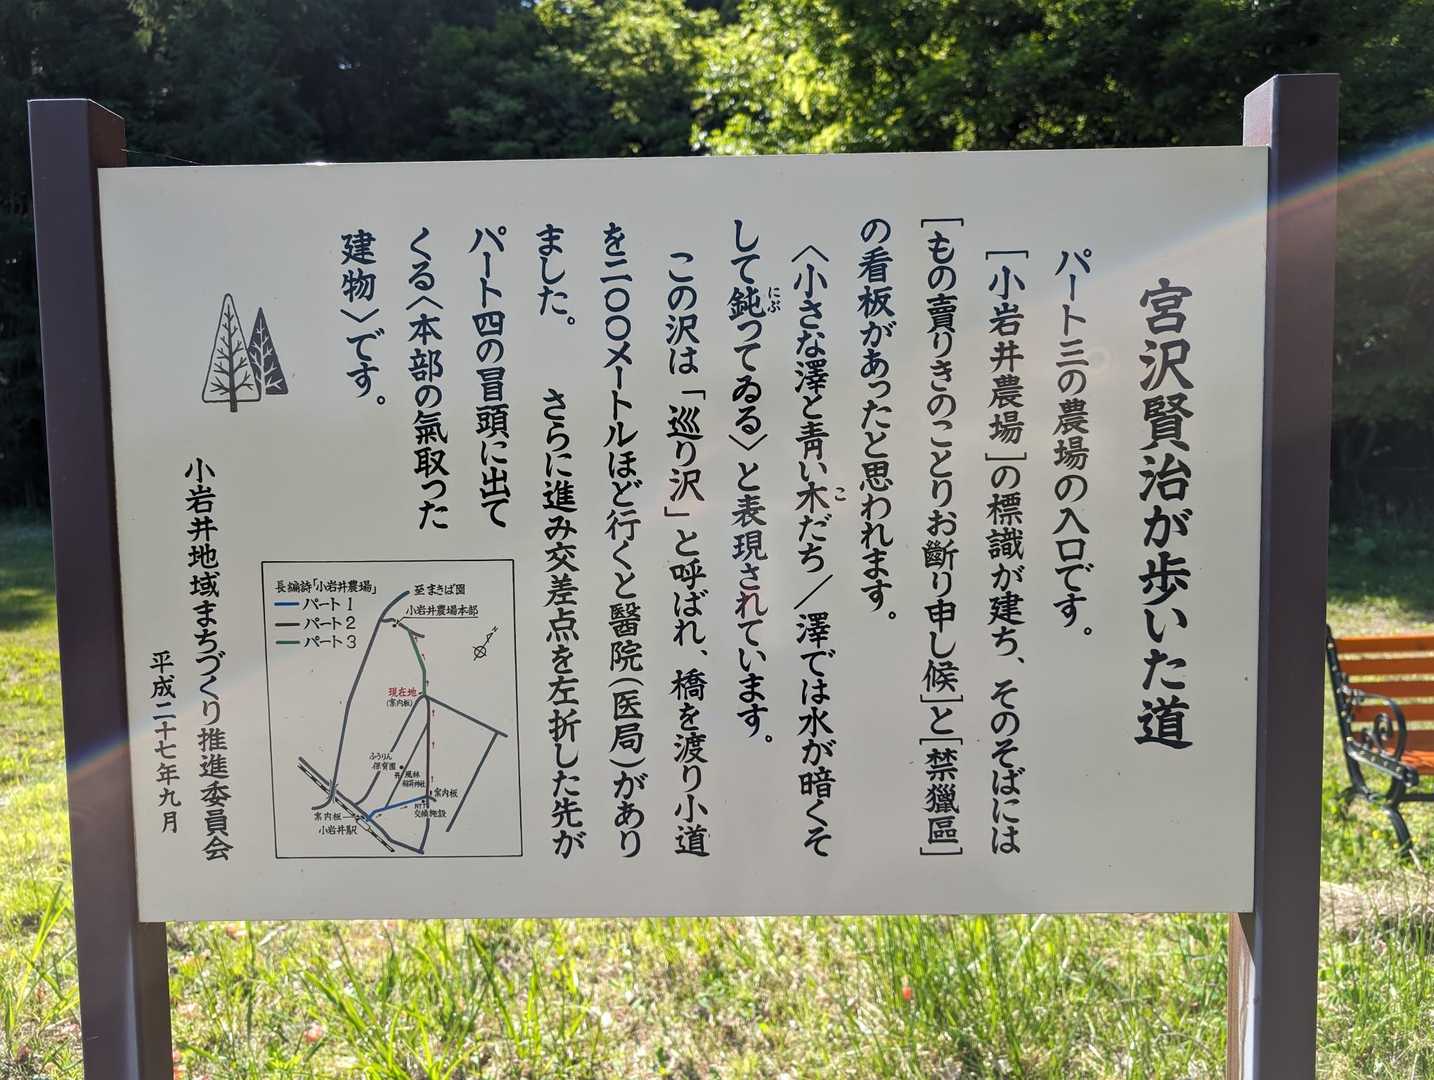 宮沢賢治が歩いた道
パート三の農場の入口です。
[小岩井農場]の標識が建ち、そのそばには
[もの賣りきのことりお斷り申し候]と[禁獵區]
の看板があったと思われます。
〈小さな澤と青い木だち／澤では水が暗くそ
こ
して鈍ってゐる〉と表現されています。
にぶ
この沢は「巡り沢」と呼ばれ、橋を渡り小道
を二〇〇メートルほど行くと醫院(医局)があり
ました。　さらに進み交差点を左折した先が
パート四の冒頭に出て
くる〈本部の氣取った
建物〉です。
小岩井地域まちづくり推進委員会
平成二十七年九月
長編詩「小岩井農場」
パート1
パート2
パート3
至まきば園
小岩井農場本部
N
現在地
(案内板)
ふうりん
保育園
風林
稲荷神社
案内板
NTT
交換施設
案内板
小岩井駅